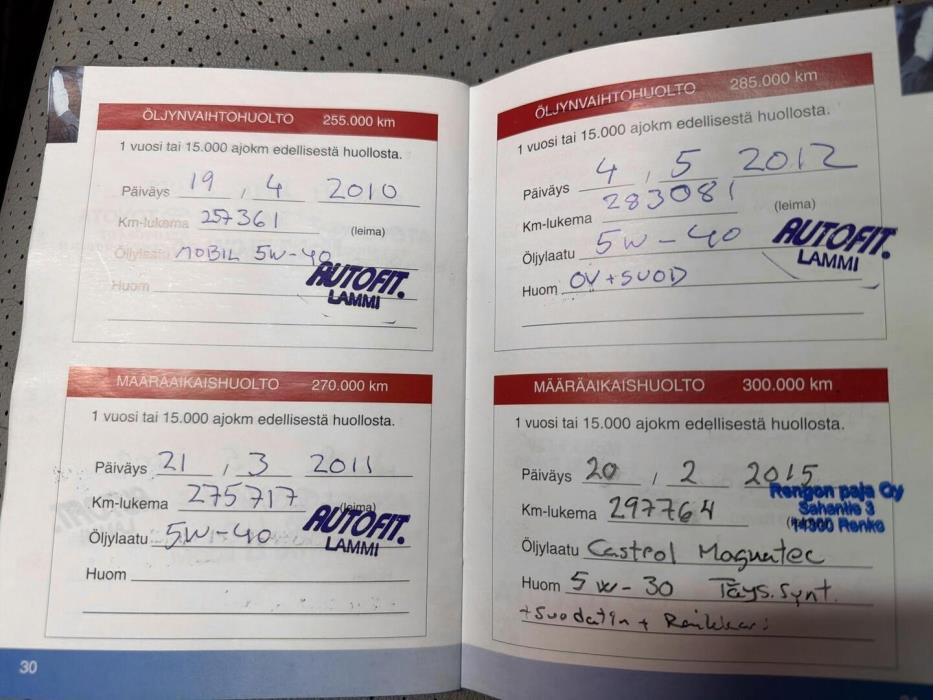 ÖLJYNVAIHTOHUOLTO 255.000 km
1 vuosi tai 15.000 ajokm edellisestä huollosta.
Päiväys 19 , 4 2010
Km-lukema 257361
(leima)
Öljylaatu MOBIL 5W-40
AUTOFIT.
LAMMI
Huom
MÄÄRÄAIKAISHUOLTO 270.000 km
1 vuosi tai 15.000 ajokm edellisestä huollosta.
Päiväys 21 , 3 2011
Km-lukema 275717
(leima)
AUTOFIT.
LAMMI
Öljylaatu 5W-40
Huom
30
ÖLJYNVAIHTOHUOLTO 285.000 km
1 vuosi tai 15.000 ajokm edellisestä huollosta.
Päiväys 4 , 5 2012
Km-lukema 283081
(leima)
Öljylaatu 5W-40
AUTOFIT.
LAMMI
Huom ÖV+SUOD
MÄÄRÄAIKAISHUOLTO 300.000 km
1 vuosi tai 15.000 ajokm edellisestä huollosta.
Päiväys 20 , 2 2015
Rengon paja Oy
Sahantie 3
14300 Renko
Km-lukema 297764
Öljylaatu Castrol Magnatec
Huom 5W-30 Täys.Synt.
+Suodatin +